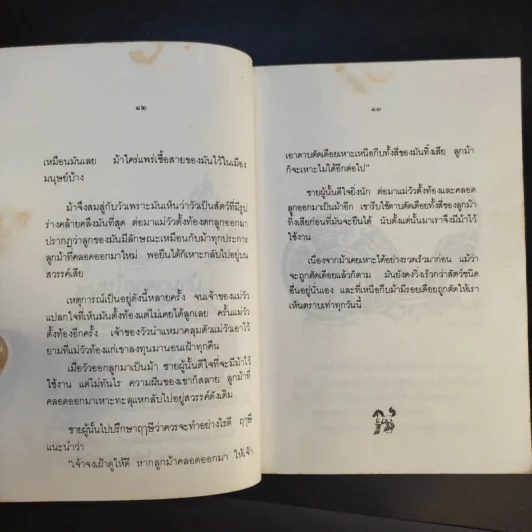 ๑๒
เหมือนมันเลย ม้าใคร่แพร่เชื้อสายของมันไว้ในเมือง
มนุษย์บ้าง
ม้าจึงสมสู่กับวัวเพราะมันเห็นว่าวัวเป็นสัตว์ที่มีรูป
ร่างคล้ายคลึงมันที่สุด ต่อมาแม่วัวตั้งท้องตกลูกออกมา
ปรากฏว่าลูกของมันมีลักษณะเหมือนกับม้าทุกประการ
ลูกม้าที่คลอดออกมาใหม่ พอยืนได้ก็เหาะกลับไปอยู่บน
สวรรค์เสีย
เหตุการณ์เป็นอยู่ดังนี้หลายครั้ง จนเจ้าของแม่วัว
แปลกใจที่เห็นมันตั้งท้องแต่ไม่เคยได้ลูกเลย ครั้นแม่วัว
ตั้งท้องอีกครั้ง เจ้าของวัวนำแหมาคลุมตัวแม่วัวเอาไว้
ยามที่แม่วัวท้องแก่เขาลงทุนมานอนเฝ้าทุกคืน
เมื่อวัวออกลูกมาเป็นม้า ชายผู้นั้นดีใจที่จะมีม้าไว้
ใช้งาน แต่ไม่ทันไร ความฝันของเขาก็สลาย ลูกม้าที่
คลอดออกมาเหาะทะลุแหกลับไปอยู่สวรรค์ดังเดิม
ชายผู้นั้นไปปรึกษาฤๅษีว่าควรจะทำอย่างไรดี ฤๅษี
แนะนำว่า
"เจ้าจงเฝ้าดูให้ดี หากลูกม้าคลอดออกมา ให้เจ้า
๑๓
เอาดาบตัดเดือยเหาะเหนือกีบทั้งสี่ของมันทิ้งเสีย ลูกม้า
ก็จะเหาะไม่ได้อีกต่อไป"
ชายผู้นั้นดีใจยิ่งนัก ต่อมาแม่วัวตั้งท้องและคลอด
ลูกออกมาเป็นม้าอีก เขารีบใช้ดาบตัดเดือยทั้งสี่ของลูกม้า
ทิ้งเสียก่อนที่มันจะยืนได้ นับตั้งแต่นั้นมาเราจึงมีม้าไว้
ใช้งาน
เนื่องจากม้าเคยเหาะได้อย่างรวดเร็วมาก่อน แม้ว่า
จะถูกตัดเดือยแล้วก็ตาม มันยังคงวิ่งเร็วกว่าสัตว์ชนิด
อื่นอยู่นั่นเอง และที่เหนือกีบม้ามีรอยเดือยถูกตัดให้เรา
เห็นตราบเท่าทุกวันนี้